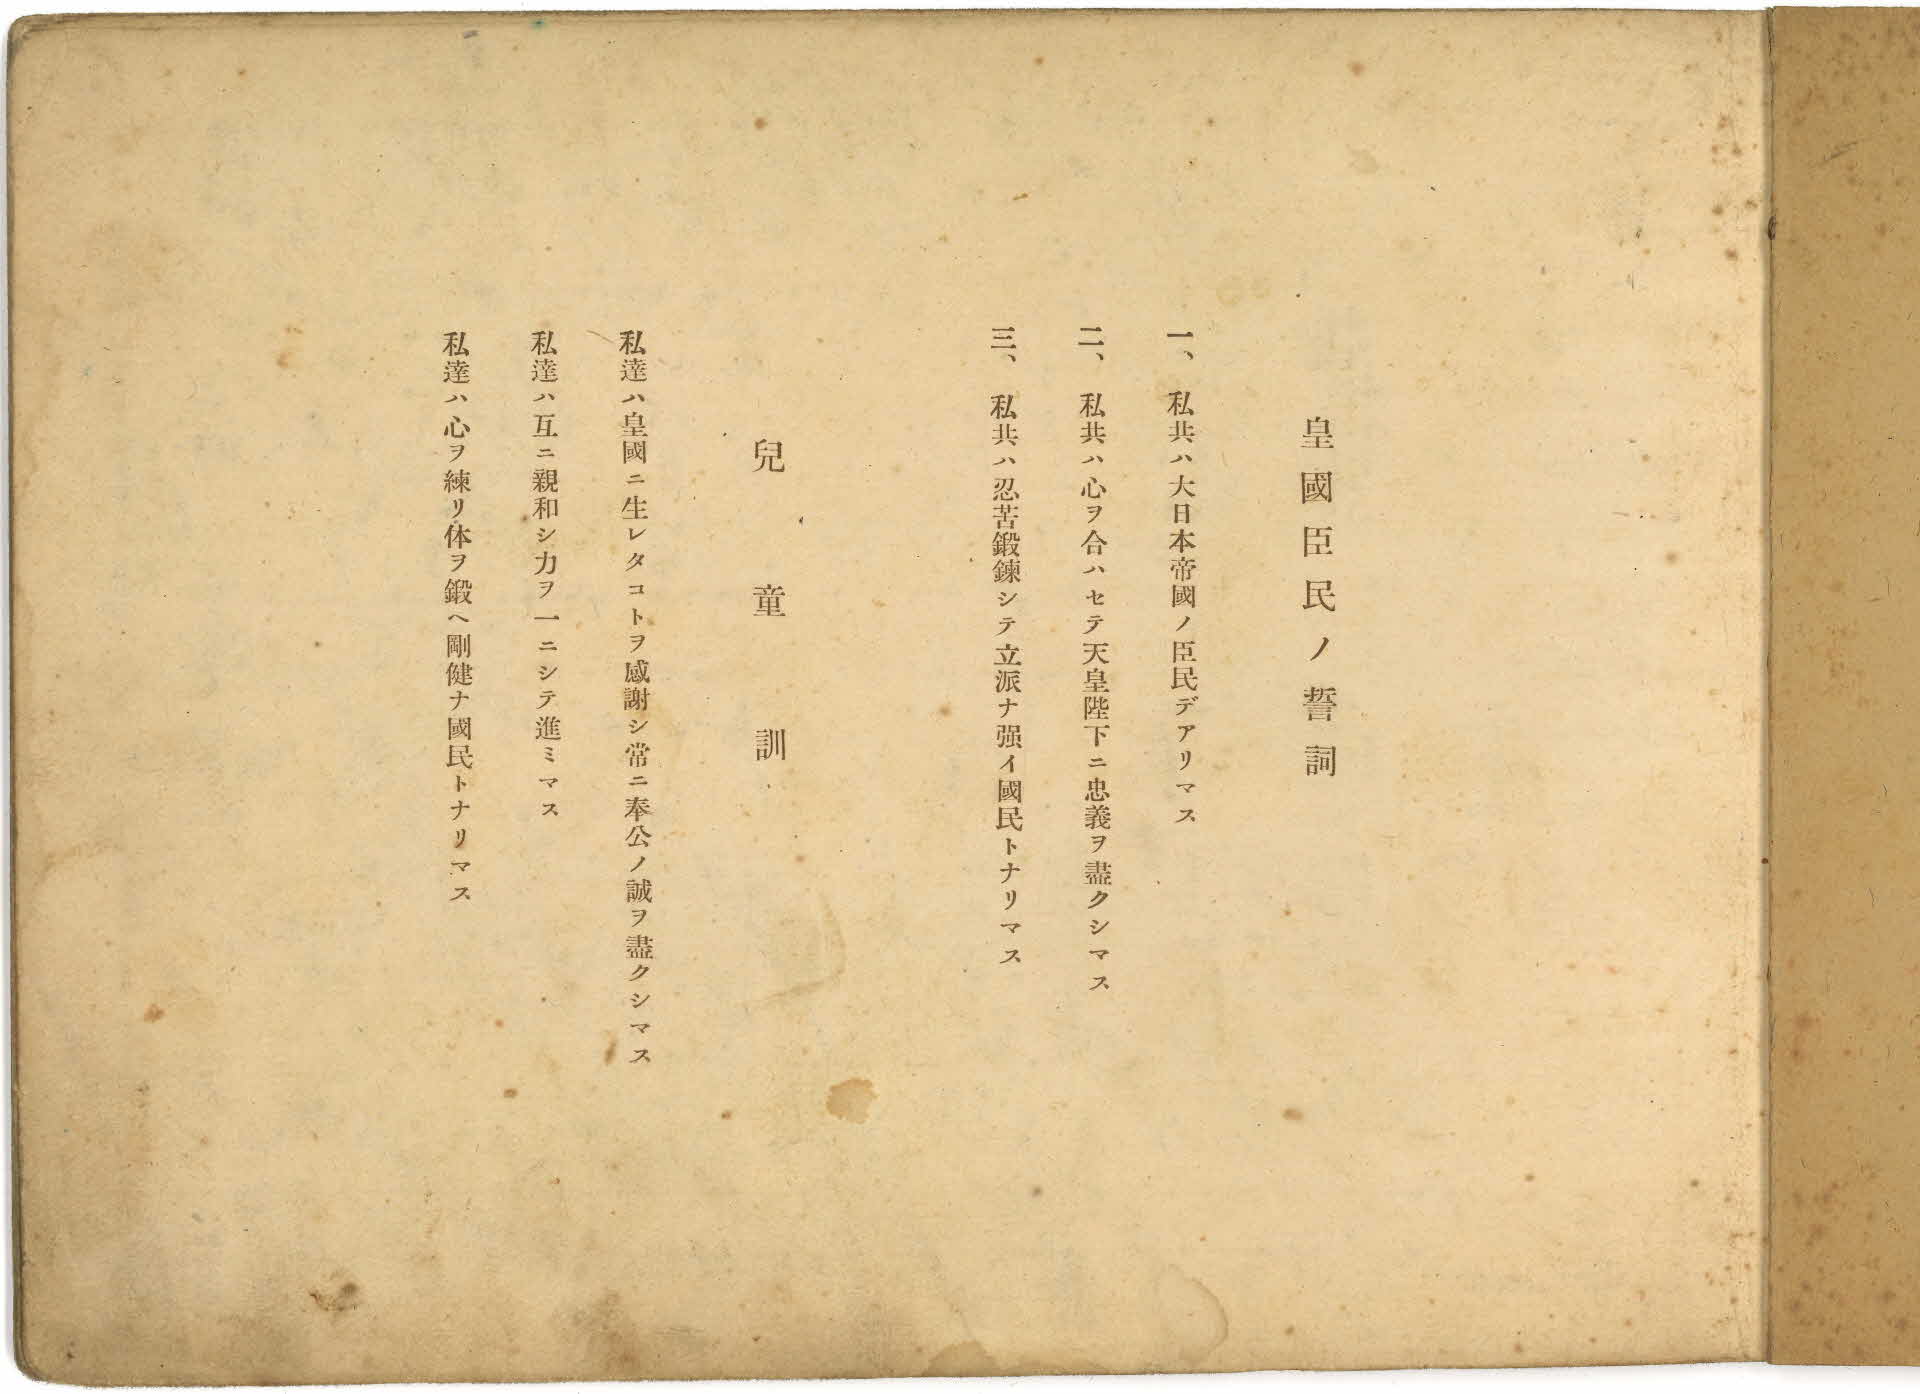 皇國臣民ノ誓詞
一、私共ハ大日本帝國ノ臣民デアリマス
二、私共ハ心ヲ合ハセテ天皇陛下ニ忠義ヲ盡クシマス
三、私共ハ忍苦鍛鍊シテ立派ナ强イ國民トナリマス
兒童訓
私達ハ皇國ニ生レタコトヲ感謝シ常ニ奉公ノ誠ヲ盡クシマス
私達ハ互ニ親和シ力ヲ一ニシテ進ミマス
私達ハ心ヲ練リ体ヲ鍛ヘ剛健ナ國民トナリマス